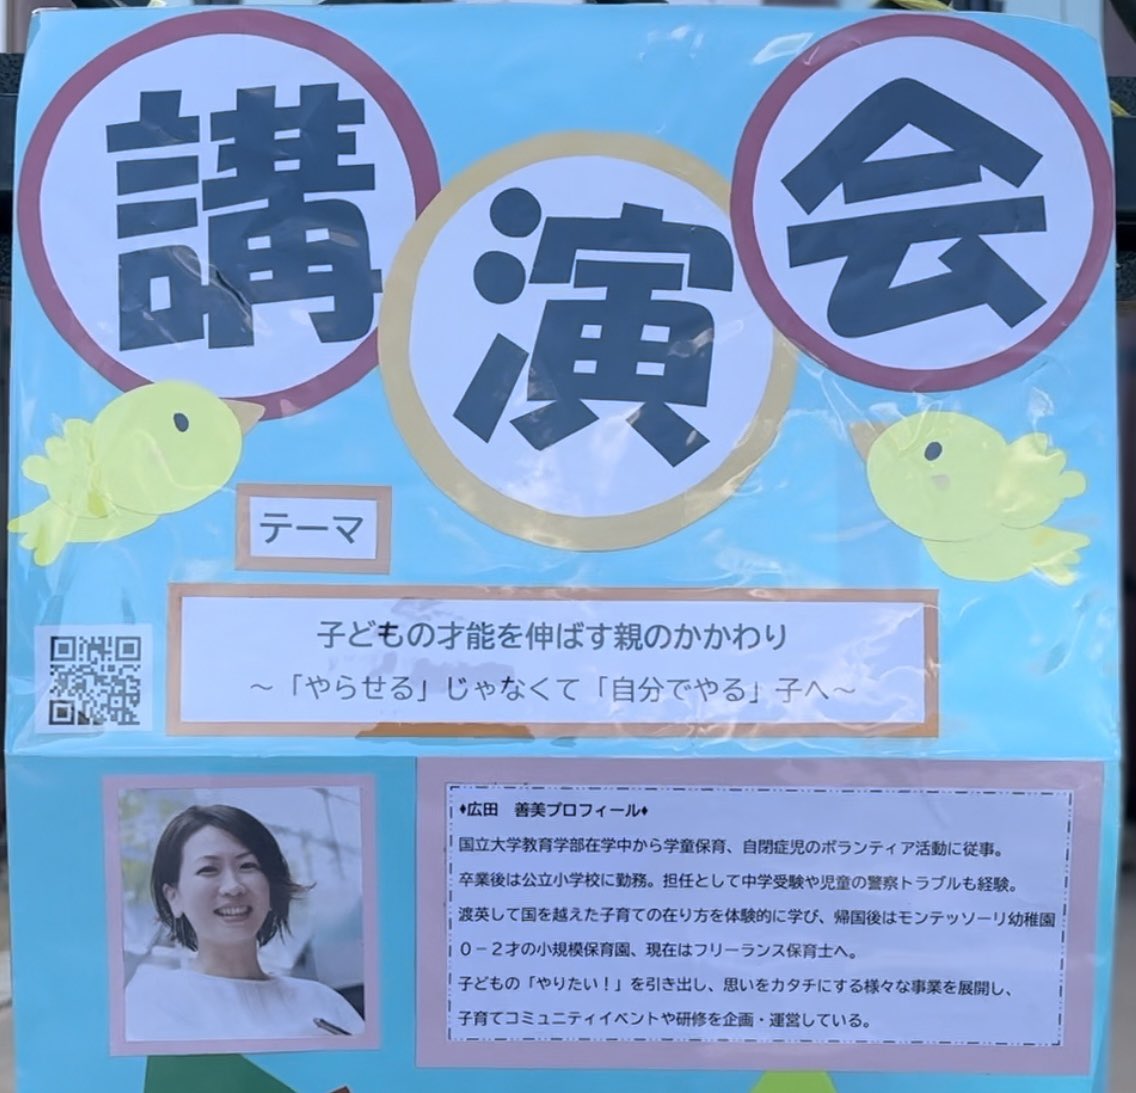 講演会
テーマ
子どもの才能を伸ばす親のかかわり
～「やらせる」じゃなくて「自分でやる」子へ～
♦広田　善美プロフィール♦
国立大学教育学部在学中から学童保育、自閉症児のボランティア活動に従事。
卒業後は公立小学校に勤務。担任として中学受験や児童の警察トラブルも経験。
渡英して国を越えた子育ての在り方を体験的に学び、帰国後はモンテッソーリ幼稚園
０－２才の小規模保育園、現在はフリーランス保育士へ。
子どもの「やりたい！」を引き出し、思いをカタチにする様々な事業を展開し、
子育てコミュニティイベントや研修を企画・運営している。